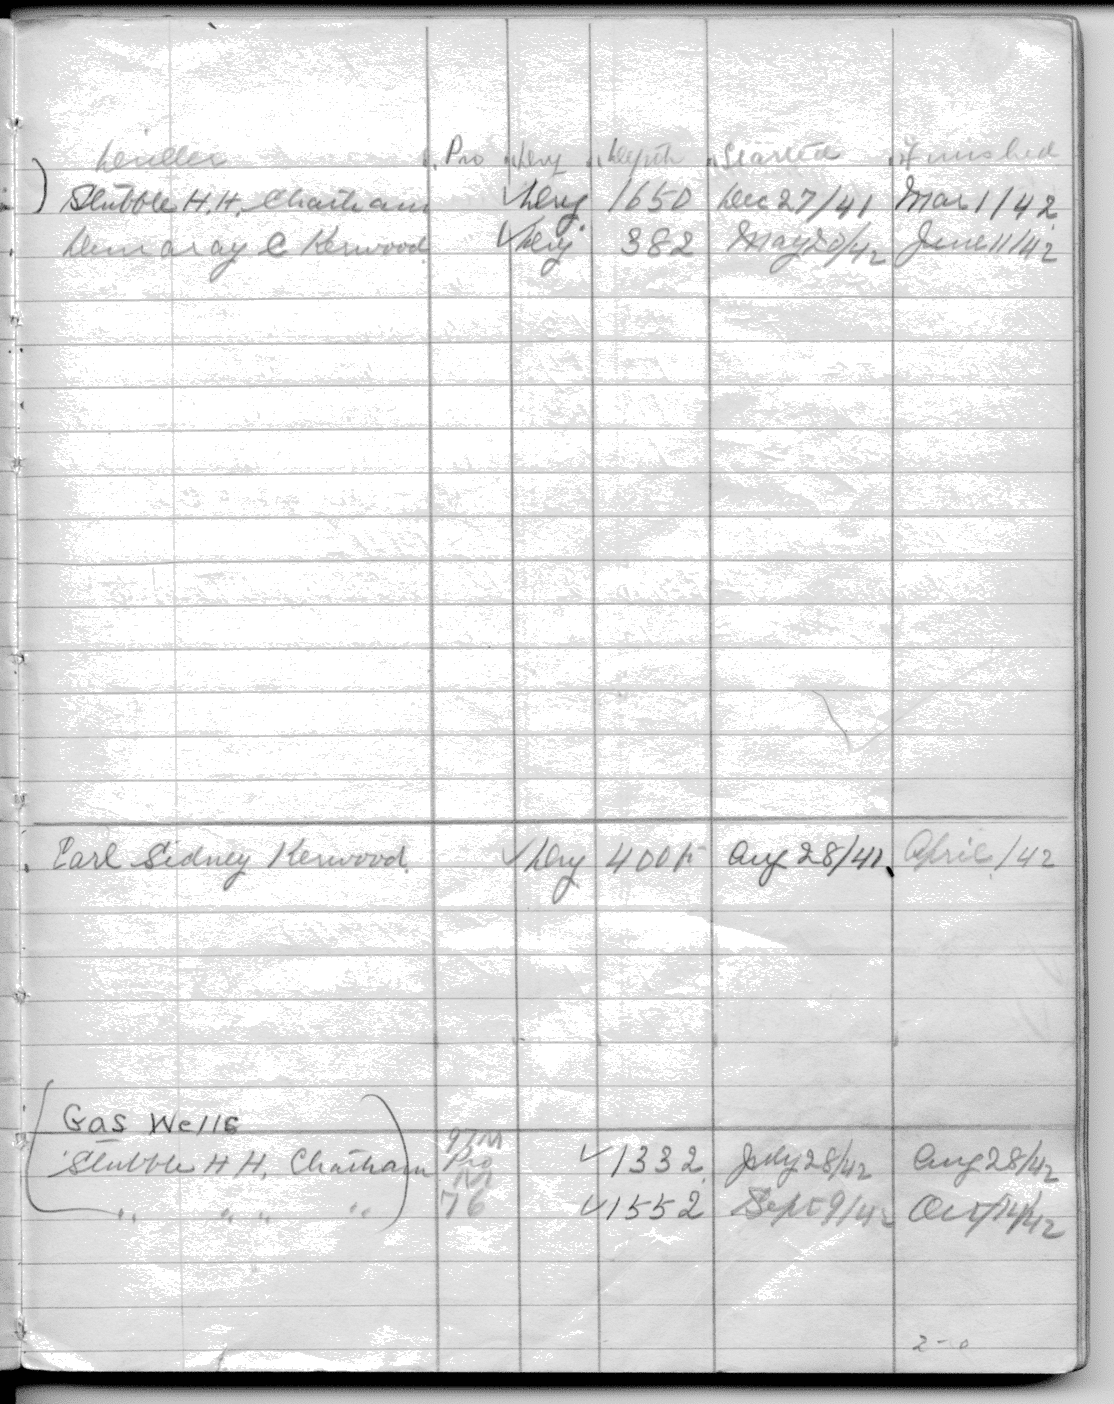 Driller Pro Dry Depth Started Finished
Stubble H.H. Chatham ✓ Dry 1650 Dec 27/41 Mar 1/42
Demaray C Kerwood ✓ Dry 382 May 20/42 June 11/42
Earl Sidney Kerwood ✓ Dry 400 ft Aug 28/41 April /42
Gas Wells
Stubble H H. Chatham Pro ✓ 1332 July 28/42 Aug 28/42
" " " " 76 ✓ 1552 Sept 9/42 Oct 14/42
2-0